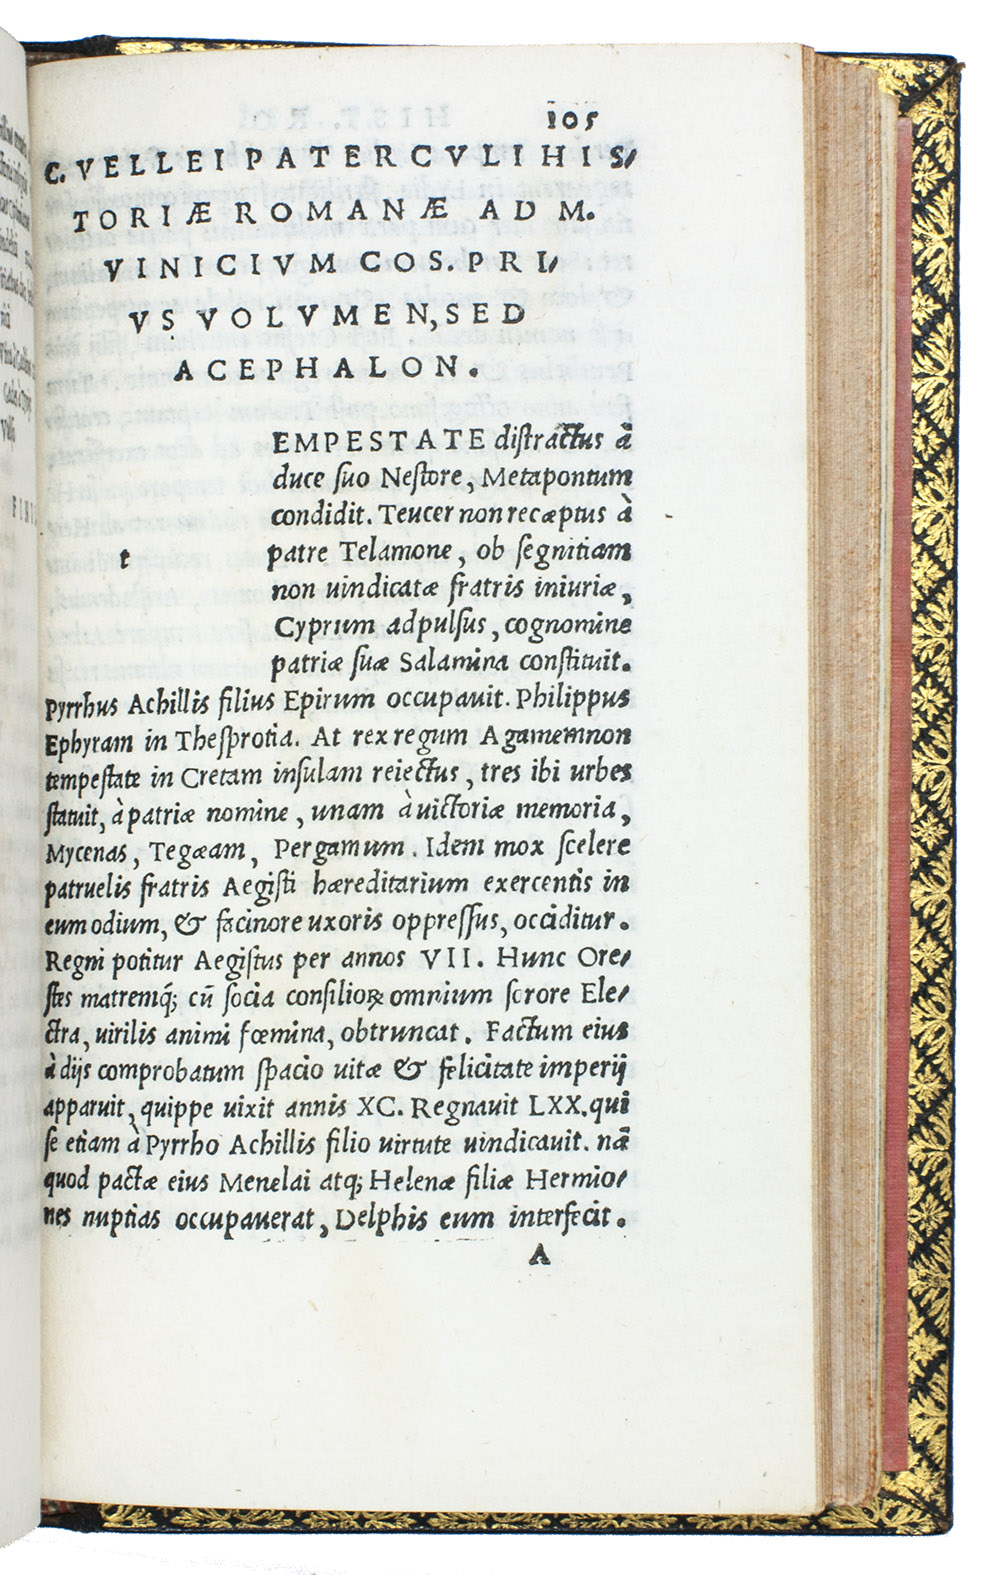 105
C. VELLEI PATERCVLI HIS/
TORIÆ ROMANÆ AD M.
VINICIVM COS. PRI/
VS VOLVMEN, SED
ACEPHALON.
t
EMPESTATE distractus à
duce suo Nestore, Metapontum
condidit. Teucer non recæptus à
patre Telamone, ob segnitiam
non uindicatæ fratris iniuriæ,
Cyprum adpulsus, cognomine
patriæ suæ Salamina constituit.
Pyrrhus Achillis filius Epirum occupauit. Philippus
Ephyram in Thesprotia. At rex regum Agamemnon
tempestate in Cretam insulam reiectus, tres ibi urbes
statuit, à patriæ nomine, unam à uictoriæ memoria,
Mycenas, Tegæam, Pergamum. Idem mox scelere
patruelis fratris Aegisti hæreditarium exercentis in
eum odium, & facinore uxoris oppressus, occiditur.
Regni potitur Aegistus per annos VII. Hunc Ore/
stes matremq; cũ socia consilioꝝ omnium sorore Ele/
ctra, uirilis animi fœmina, obtruncat. Factum eius
à dijs comprobatum spacio uitæ & felicitate imperij
apparuit, quippe uixit annis XC. Regnauit LXX. qui
se etiam à Pyrrho Achillis filio uirtute uindicauit. nã
quod pactæ eius Menelai atq; Helenæ filiæ Hermio/
nes nuptias occupauerat, Delphis eum interfecit.
A